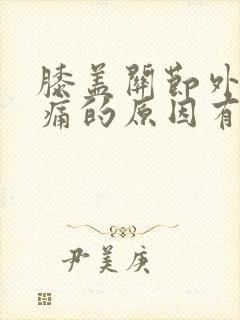 膝盖關節外
痛的原因有
尹美庚